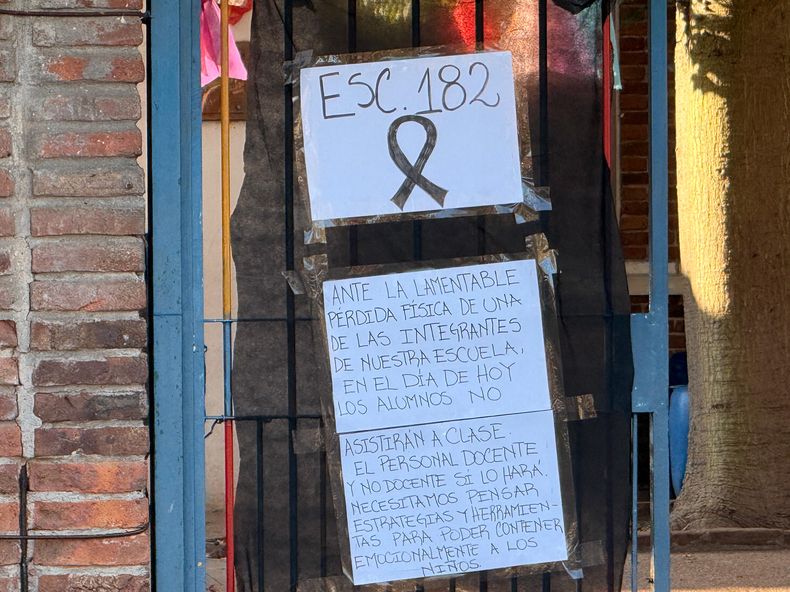 ESC. 182
ANTE LA LAMENTABLE
PÉRDIDA FÍSICA DE UNA
DE LAS INTEGRANTES
DE NUESTRA ESCUELA,
EN EL DÍA DE HOY
LOS ALUMNOS NO
ASISTIRÁN A CLASE
EL PERSONAL DOCENTE
Y NO DOCENTE SÍ LO HARÁ.
NECESITAMOS PENSAR
ESTRATEGIAS Y HERRAMIEN-
TAS PARA PODER CONTENER
EMOCIONALMENTE A LOS
NIÑOS.